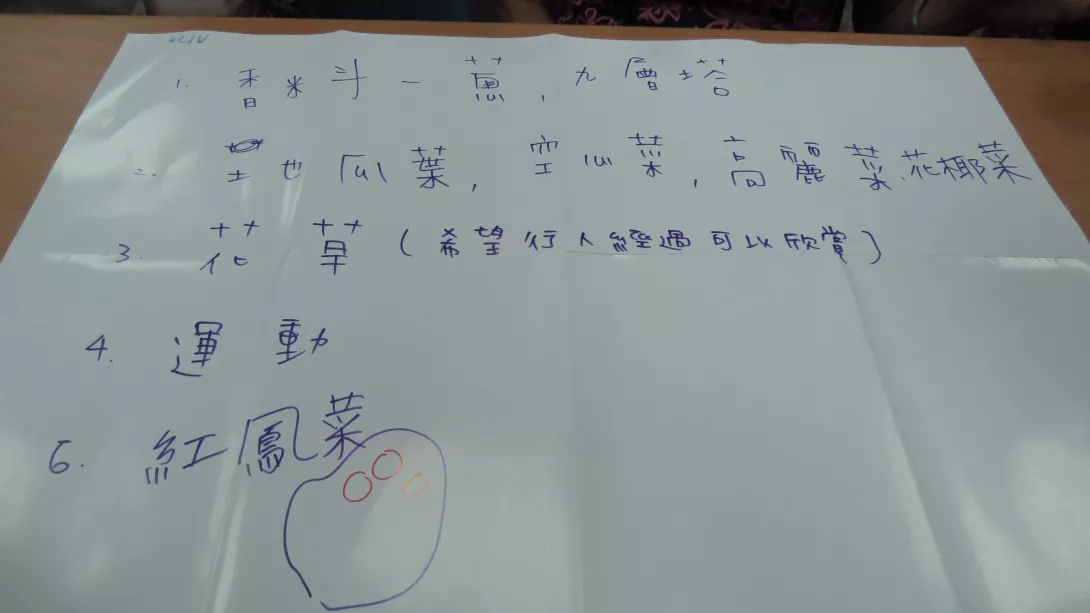 1. 香料—蔥,九層塔
二. 地瓜葉,空心菜,高麗菜.花椰菜
3. 花草(希望行人經過可以欣賞)
4. 運動
6. 紅鳳菜